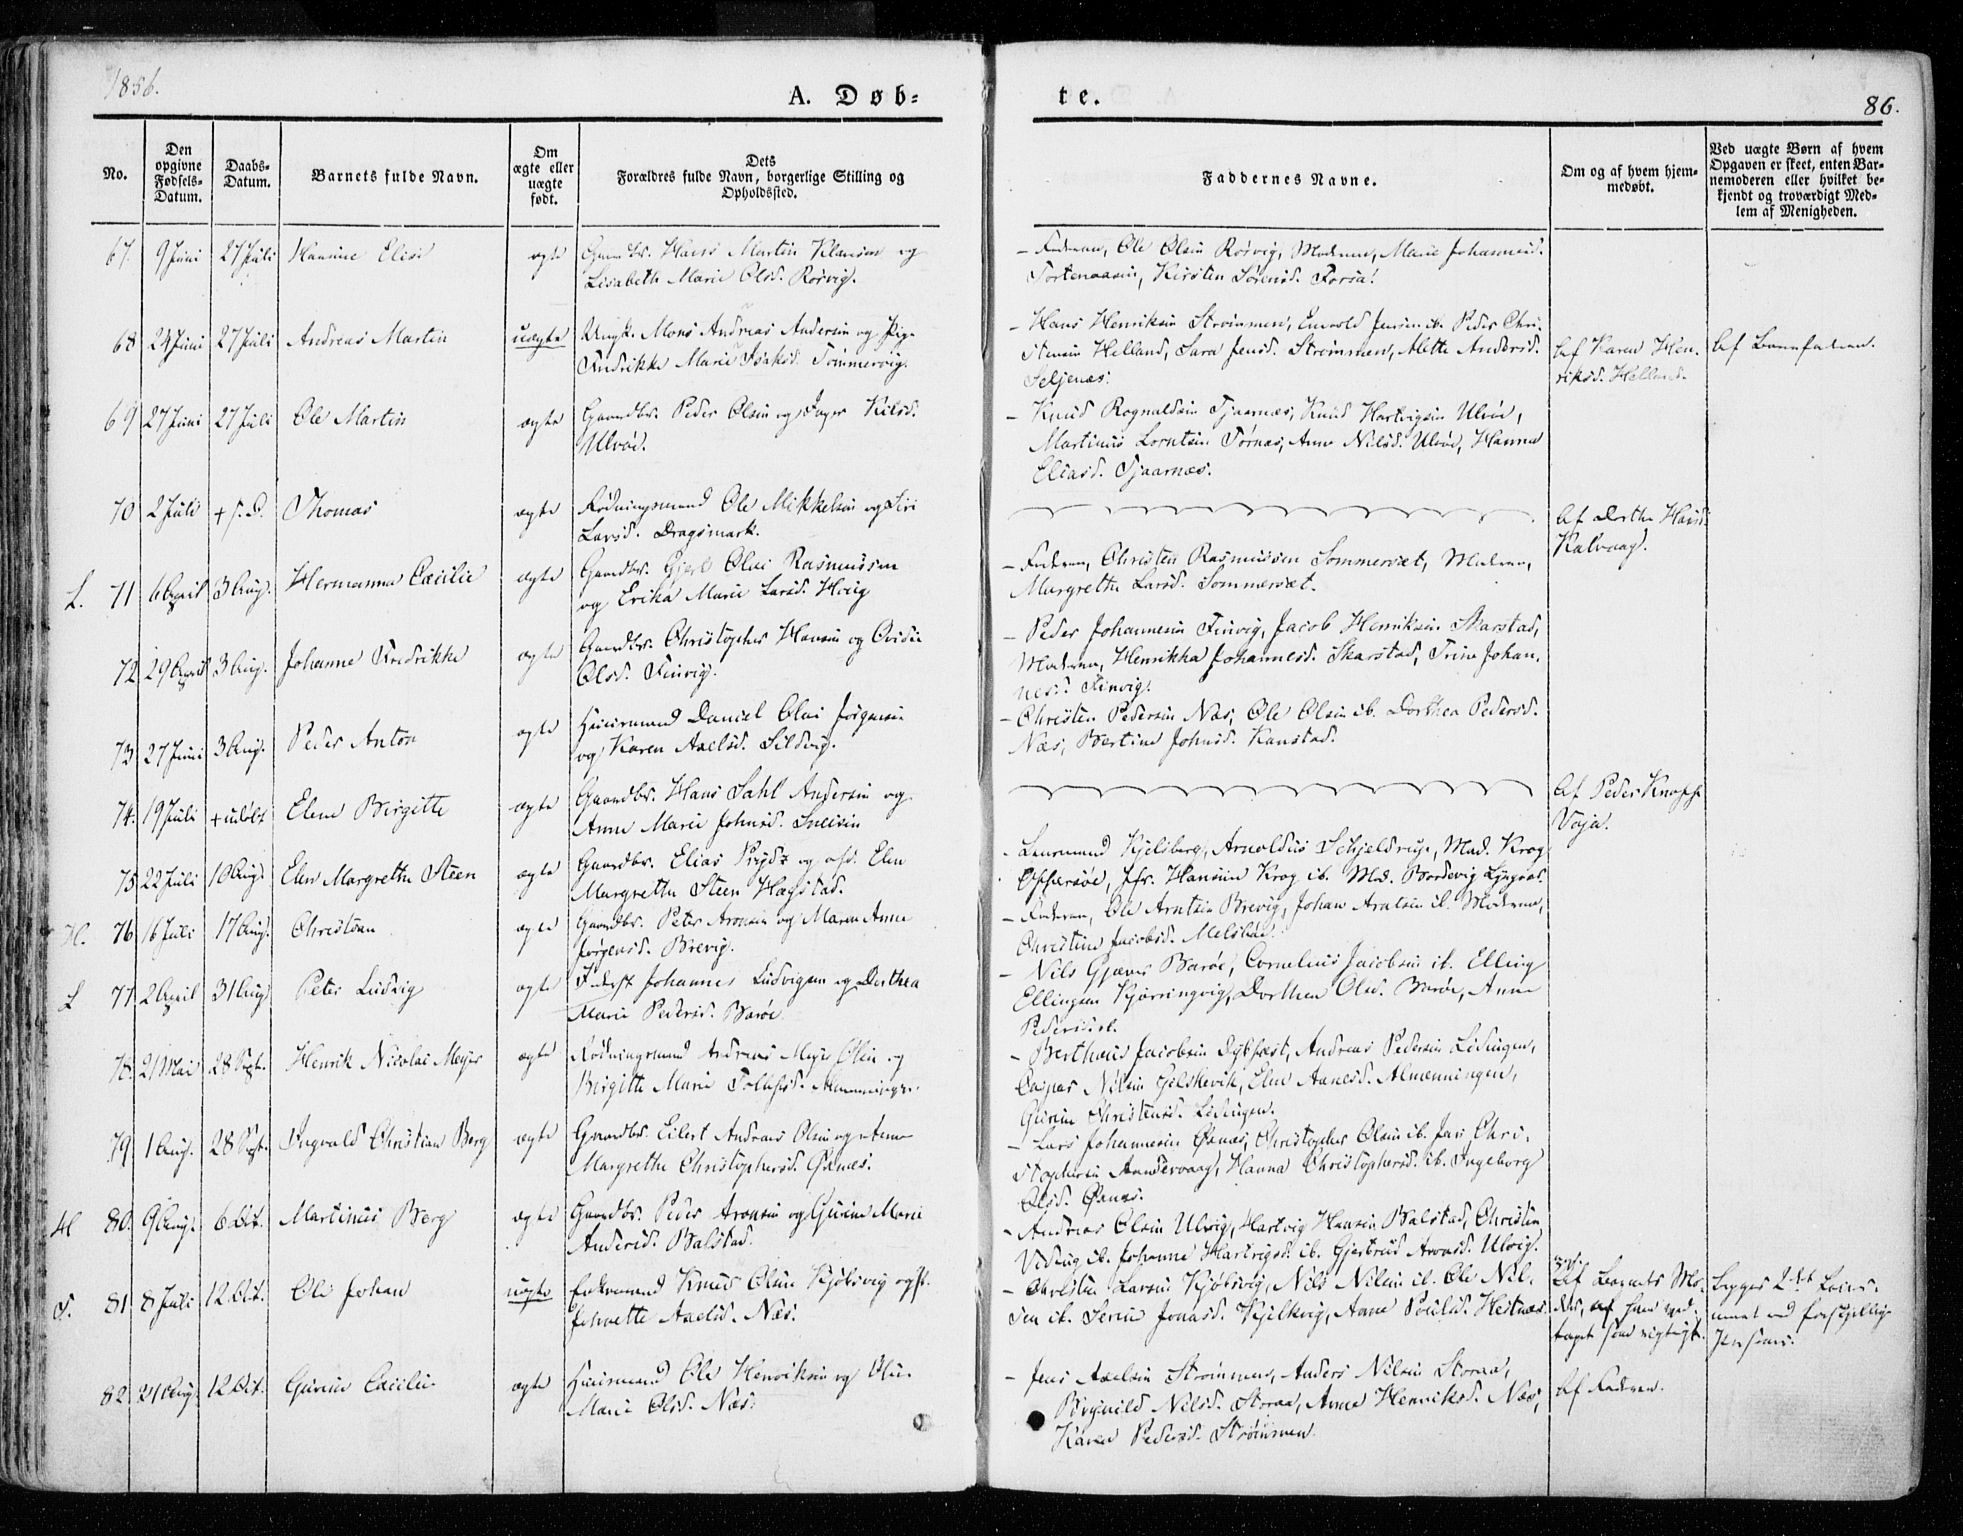 1856.
A. Døb-
te.
86.
No.
Den opgivne Fødsels-Datum.
Daabs-Datum.
Barnets fulde Navn.
Om ægte eller uægte født.
Dets Forældres fulde Navn, borgerlige Stilling og Opholdssted.
Faddernes Navne.
Om og af hvem hjem-medøbt.
Ved uægte Børn af hvem Opgaven er skeet, enten Bar-nemoderen eller hvilket be-kjendt og troværdigt Med-lem af Menigheden.
67. 9 Juni 27 Juli Hansine Elise ægte Gaardbr. Hans Martin og
Lisabeth Marie Olsd. Rørvig.
– Faderen, Ole Olsen Rørvig, Moderen, Marie Johannesd.
Kirsten Sørensd. Forsa.
68 24 Juni 27 Juli Andreas Martin uægte Ungk. Mons Andreas Andersen og Pige
Fredrikke Marie Isaksd. Tømmervig.
– Hans Henriksen Strømmen, Enevold Jensen ib. Peder Chri-
stensen Helland, Sara Jensd. Strømmen, Alette Andersd.
Seljenes.
Af Karen Hen-
riksd. Helland.
Af Barnefaderen.
69 27 Juni 27 Juli Ole Martin ægte Gaardbr. Peder Olsen og Inger Nilsd.
Ulvøe.
– Knud Rognaldsen Tjaarnæs, Knud Hartvigsen Ulvøe,
Martinus Lorntsen Tørnæs, Anne Nilsd. Ulvøe, Hanna
Eliasd. Tjaarnæs.
70 2 Juli + s. D. Thomas ægte Rødningsmand Ole Mikkelsen og Siri
Larsd. Dragsmark.
Af Dorthe Hansd.
Kalvaag.
L. 71 6 April 3 Aug. Hermanna Cæcilie ægte Gaardbr. Gjert Olai Rasmussen
og Erika Marie Larsd. Hvig
– Faderen, Christen Rasmussen Sommersæt, Moderen,
Margrethe Larsd. Sommersæt.
72 29 April 3 Aug. Johanne Fredrikke ægte Gaardbr. Christopher Hansen og
Olsd. Finvig.
– Peder Johannesen Finvig, Jacob Henriksen Skarstad,
Moderen, Henrikka Johannesd. Skarstad, Trine Johan-
nesd. Finvig.
73. 27 Juni 3 Aug. Peder Anton ægte Huusmand Daniel Olai Jørgensen
og Karen Axelsd. Sildvig.
– Christen Pedersen Næs, Ole Olsen ib. Dorthea Pedersd.
Næs, Bertine Johnsd. Kanstad.
74. 19 Juli + udøbt Elene Birgitte ægte Gaardbr. Hans Dahl Andersen og
Anne Marie Johnsd.
Af Peder Knoph
Voja.
75 22 Juli 10 Aug. Elen Margrethe Steen ægte Gaardbr. Elias Prydz og Elen
Margrethe Steen Hagstad.
Lensmand Kjelsberg, Arnoldus Schjeldrup, Mad. Krog
Offersøe, Jfr. Hansine Krog ib. Mad. Bordevig
H. 76 16 Juli 17 Aug. Christian ægte Gaardbr. Peter Aronsen og Maren Anne
Jørgensd. Brevig.
– Faderen, Ole Arntsen Brevig, Johan Arntsen ib. Moderen,
Christine Jacobsd.
L 77 2 April 31 Aug. Peter Ludvig ægte Inderst Johannes Ludvigsen og Dorthea
Marie Pedersd. Barøe
– Nils Gjæver Barøe, Cornelius Jacobsen ib. Elling
Ellingsen Kjørringvig, Dorthea Olsd. Barøe, Anne
Pedersd. ib.
78. 21 Mai 28 Sept. Henrik Nicolai Meyer ægte Rødningsmand Andreas Meyer Olsen og
Birgitte Marie
– Berthæus Jacobsen Dybfæst, Andreas Pedersen Lødingen,
Caspar Nilsen Elen Aanesd. Almenningen,
Gurine Christensd. Lødingen.
79 1 Aug. 28 Sept. Ingvald Christian Berg ægte Gaardbr. Eilert Andreas Olsen og Anne
Margrethe Christophersd. Øxnæs.
– Lars Johannesen Øxnæs, Christopher Olsen ib. Chri-
stophersen Hanna Christophersd. ib. Ingeborg
Olsd. Øxnæs.
H 80. 9 Aug. 6 Oct. Martinus Berg ægte Gaardbr. Peder Aronsen og Gurine Marie
Andersd. Balstad.
– Andreas Olsen Ulvig, Hartvig Hansen Balstad, Christen
ib. Johanne Hartvigsd. ib. Gjertrud Aronsd. Ulvig.
F. 81. 8 Juli 12 Oct. Ole Johan uægte Enkemand Knud Olsen Kjøbsvig og P.
Johnette Axelsd. Næs.
– Christen Larsen Kjøbsvig, Nils Nilsen ib. Ole Nil-
sen ib. Serine Jonasd. Anne Poulsd. Hestnæs.
Af Barnets Mo-
der, af ved-
taget som rigtigt.
Begges 2det Leier-
maal med forskjellige
Personer.
82. 21 Aug. 12 Oct. Gurine Cæcilie ægte Huusmand Ole Henriksen og
Marie Olsd. Næs.
– Jens Axelsen Strømmen, Anders Nilsen Storaa,
Nilsd. Storaa, Anne Henriksd. Næs,
Karen Pedersd. Strømmen.
Af Faderen.